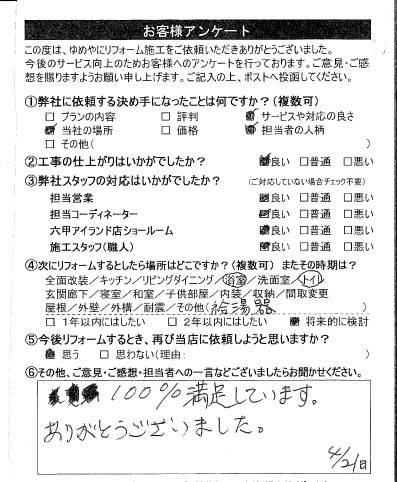 お客様アンケート
この度は、ゆめやにリフォーム施工をご依頼いただきありがとうございました。
今後のサービス向上のためお客様へのアンケートを行っております。ご意見・ご感
想を賜りますようお願い申し上げます。ご記入の上、ポストへ投函してください。
①弊社に依頼する決め手になったことは何ですか？(複数可)
□ プランの内容 □ 評判 ☑ サービスや対応の良さ
☑ 当社の場所 □ 価格 ☑ 担当者の人柄
□ その他( )
②工事の仕上がりはいかがでしたか？ ☑良い □普通 □悪い
③弊社スタッフの対応はいかがでしたか？ (ご対応していない場合チェック不要)
担当営業 ☑良い □普通 □悪い
担当コーディネーター ☑良い □普通 □悪い
六甲アイランド店ショールーム ☑良い □普通 □悪い
施工スタッフ(職人) ☑良い □普通 □悪い
④次にリフォームするとしたら場所はどこですか？(複数可) またその時期は？
全面改装／キッチン／リビングダイニング／浴室／洗面室／トイレ
玄関廊下／寝室／和室／子供部屋／内装／収納／間取変更
屋根／外壁／外構／耐震／その他(給湯器 )
□ 1年以内にはしたい □ 2年以内にはしたい ☑ 将来的に検討
⑤今後リフォームするとき、再び当店に依頼しようと思いますか？
☑ 思う □ 思わない(理由: )
⑥その他、ご意見・ご感想・担当者への一言などございましたらお聞かせください。
100%満足しています。
ありがとうございました。
4/21日